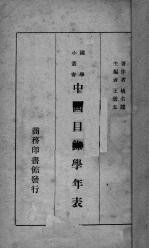 著作者 姚名達
主編者 王雲五
國學
小叢書
中國目錄學年表
商務印書館發行